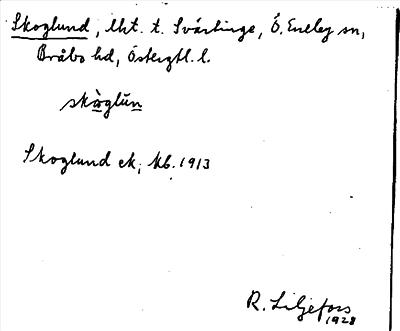 Skoglund, lht. t. Svärtinge, Ö. Eneby sn,
Bråbo hd, Östergtl. l.
skòglŭn
Skoglund ek, kb. 1913
R. Liljefors
1928